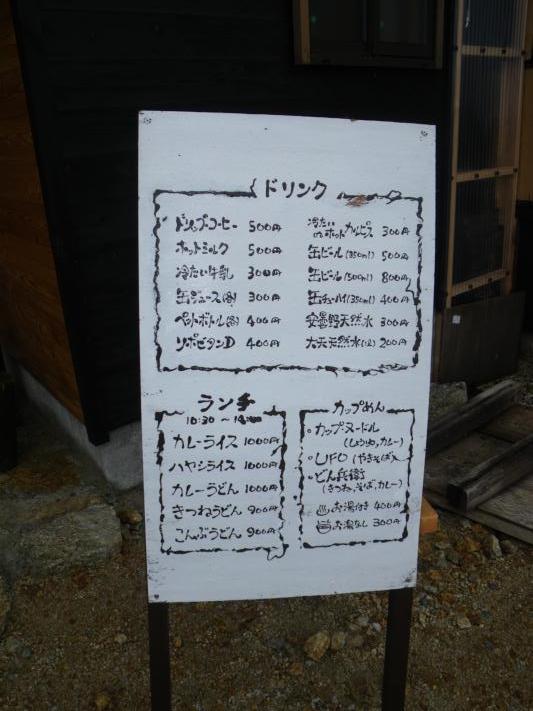 ドリンク
ドリップコーヒー 500円
ホットミルク 500円
冷たい牛乳 300円
缶ジュース(各) 300円
ペットボトル(各) 400円
リポビタンD 400円
冷たい
orホット カルピス 300円
缶ビール(350ml) 500円
缶ビール(500ml) 800円
缶チューハイ(350ml) 400円
安曇野天然水 300円
大天天然水(1L) 200円
ランチ
10:30 〜 14:00
カレーライス 1000円
ハヤシライス 1000円
カレーうどん 1000円
きつねうどん 900円
こんぶうどん 900円
カップめん
・カップヌードル
(しょうゆ,カレー)
・UFO(やきそば)
・どん兵衛
(きつね,そば,カレー)
お湯付き 400円
お湯なし 300円